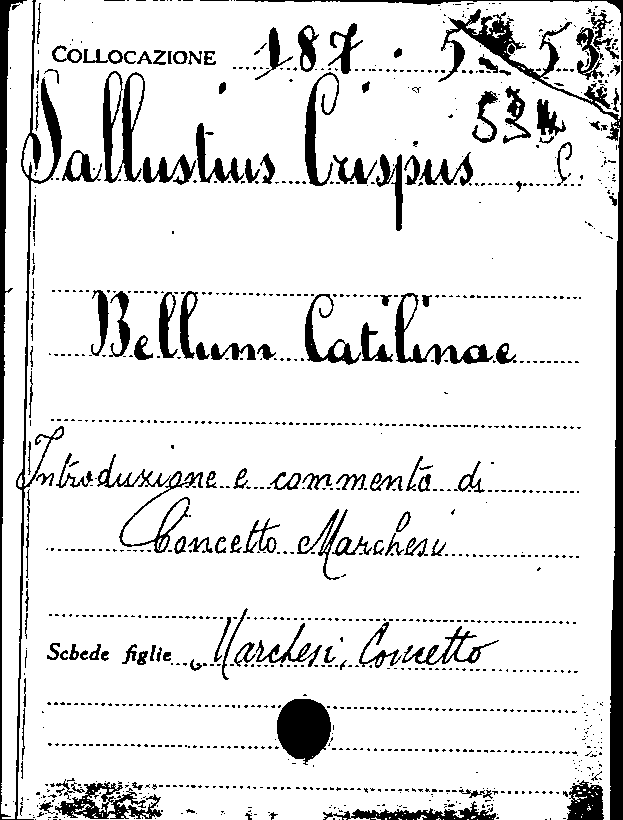 COLLOCAZIONE 187 . 5
Sallustius Crispus, C.
Bellum Catilinae
Introduzione e commento di
Concetto Marchesi
Schede figlie Marchesi, Concetto